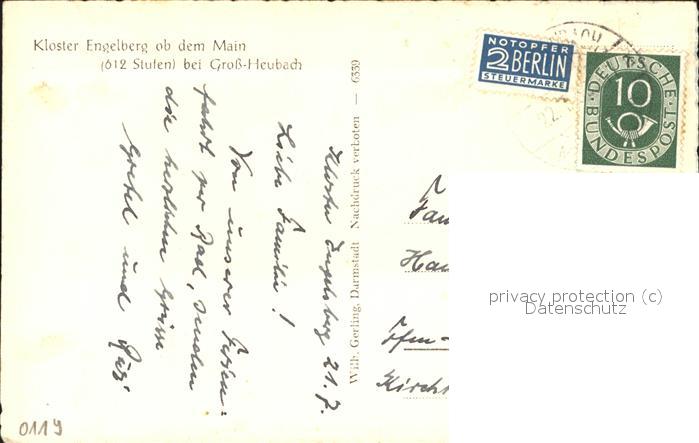 Kloster Engelberg ob dem Main
(612 Stufen) bei Groß-Heubach
NOTOPFER
2 BERLIN
STEUERMARKE
DEUTSCHE
10
BUNDESPOST
22.
Wilh. Gerling, Darmstadt Nachdruck verboten — 6339
Kloster Engelberg 21.7.
Liebe Familie!
Von unserer Ferien-
fahrt per Rad, senden
die herzlichsten Grüsse
Gretel und
Fam
Hau
Ffm-
Kirchs
privacy protection (c)
Datenschutz
0119